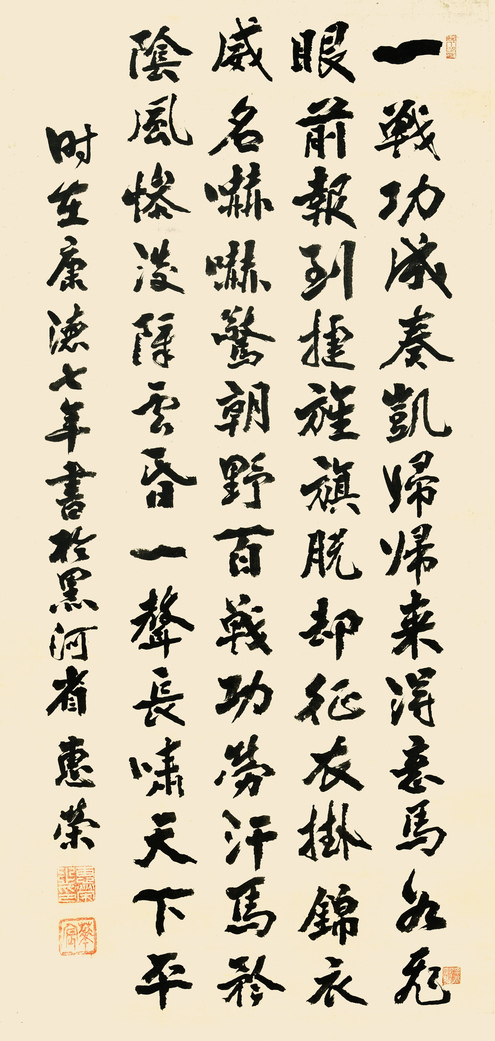 一戰功成奏凱歸歸来得意馬如飛
眼前報到捷旌旗脱却征衣掛錦衣
威名嚇嚇驚朝野百戰功勞汗馬矜
陰風慘淡陣雲昏一聲長嘯天下平
时在康德七年書於黑河省 惠榮